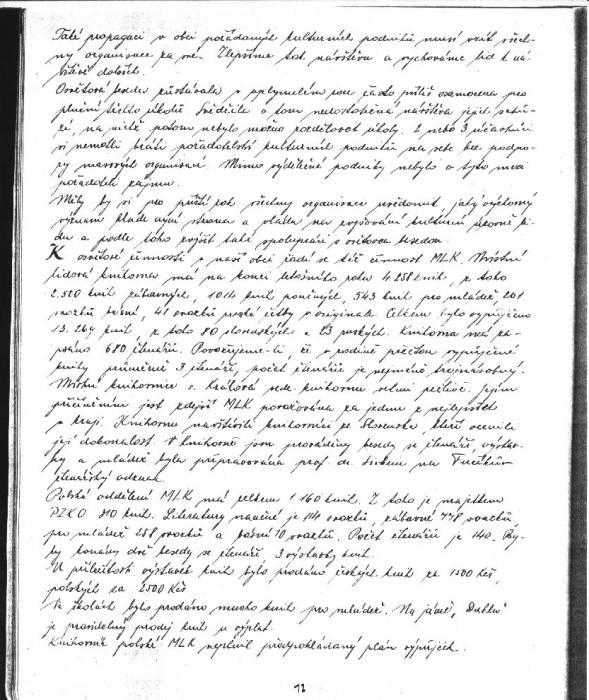 Také propagaci v obci pořádaných kulturních podniků musí vzít všech-
ny organisace za své. Zlepšíme tak návštěvu a vychováme lid k ná-
vštěvě dalších.
Osvětová beseda zůstávala v uplynulém roce často příliš osamocena při
plnění těchto úkolů. Svědčila o tom nedostatečná návštěva jejich schů-
zí, na nichž potom nebylo možno rozdělovat úkoly. 2 nebo 3 účastníci
si nemohli bráti pořadatelství kulturních podniků na sebe bez podpo-
ry masových organisací. Mimo výdělečné podniky nebylo o tyto mezi
pořadateli zájmu.
Měly by si pro příští rok všechny organisace uvědomit, jaký výlučný
význam klade nyní strana a vláda na zvyšování kulturní úrovně li-
du a podle toho zvýšit také spolupráci s osvětovou besedou.
K osvětové činnosti v naší obci řadí se též činnost MLK. Místní
lidová knihovna má na konci letošního roku 4 258 knih, z toho
2.500 knih zábavných, 1014 knih poučných, 543 knih pro mládež, 201
svazků básní, 41 svazků ruské četby v originále. Celkem bylo vypůjčeno
13.264 knih, z toho 80 slovenských a 23 ruských. Knihovna má za-
psáno 680 čtenářů. Považujeme-li, že v rodině přečtou vypůjčené
knihy průměrně 3 čtenáři, počet čtenářů je nejméně trojnásobný.
Místní knihovnice s. Králová vede knihovnu velmi pečlivě. Jejím
přičiněním jest zdejší MLK považována za jednu z nejlepších
v kraji. Knihovnu navštívili knihovníci ze Slovenska, kteří ocenili
její dokonalost. V knihovně jsou prováděny besedy se čtenáři, výstav-
ky a mládež byla připravována prof. dr. na Fučíkův
čtenářský odznak.
Polské oddělení MLK má celkem 1 160 knih. Z toho je majetkem
PZKO 810 knih. Literatury naučné je 114 svazků, zábavné 778 svazků,
pro mládež 258 svazků a básní 10 svazků. Počet čtenářů je 140. By-
ly konány dvě besedy se čtenáři, 3 výstavky knih.
U příležitosti výstavek knih bylo prodáno českých knih za 1500 Kčs,
polských za 2500 Kčs
Ve školách bylo prodáno mnoho knih pro mládež. Na jámě „Dukla"
je pravidelný prodej knih u výplat.
Knihovna polské MLK nesplnila předpokládaný plán výpůjček.
12